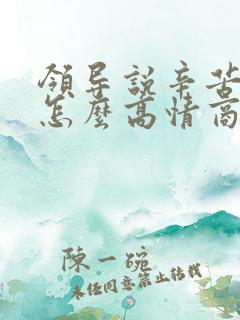 領导說辛苦
怎麼高情商
陳一碗
未经同意禁止转载